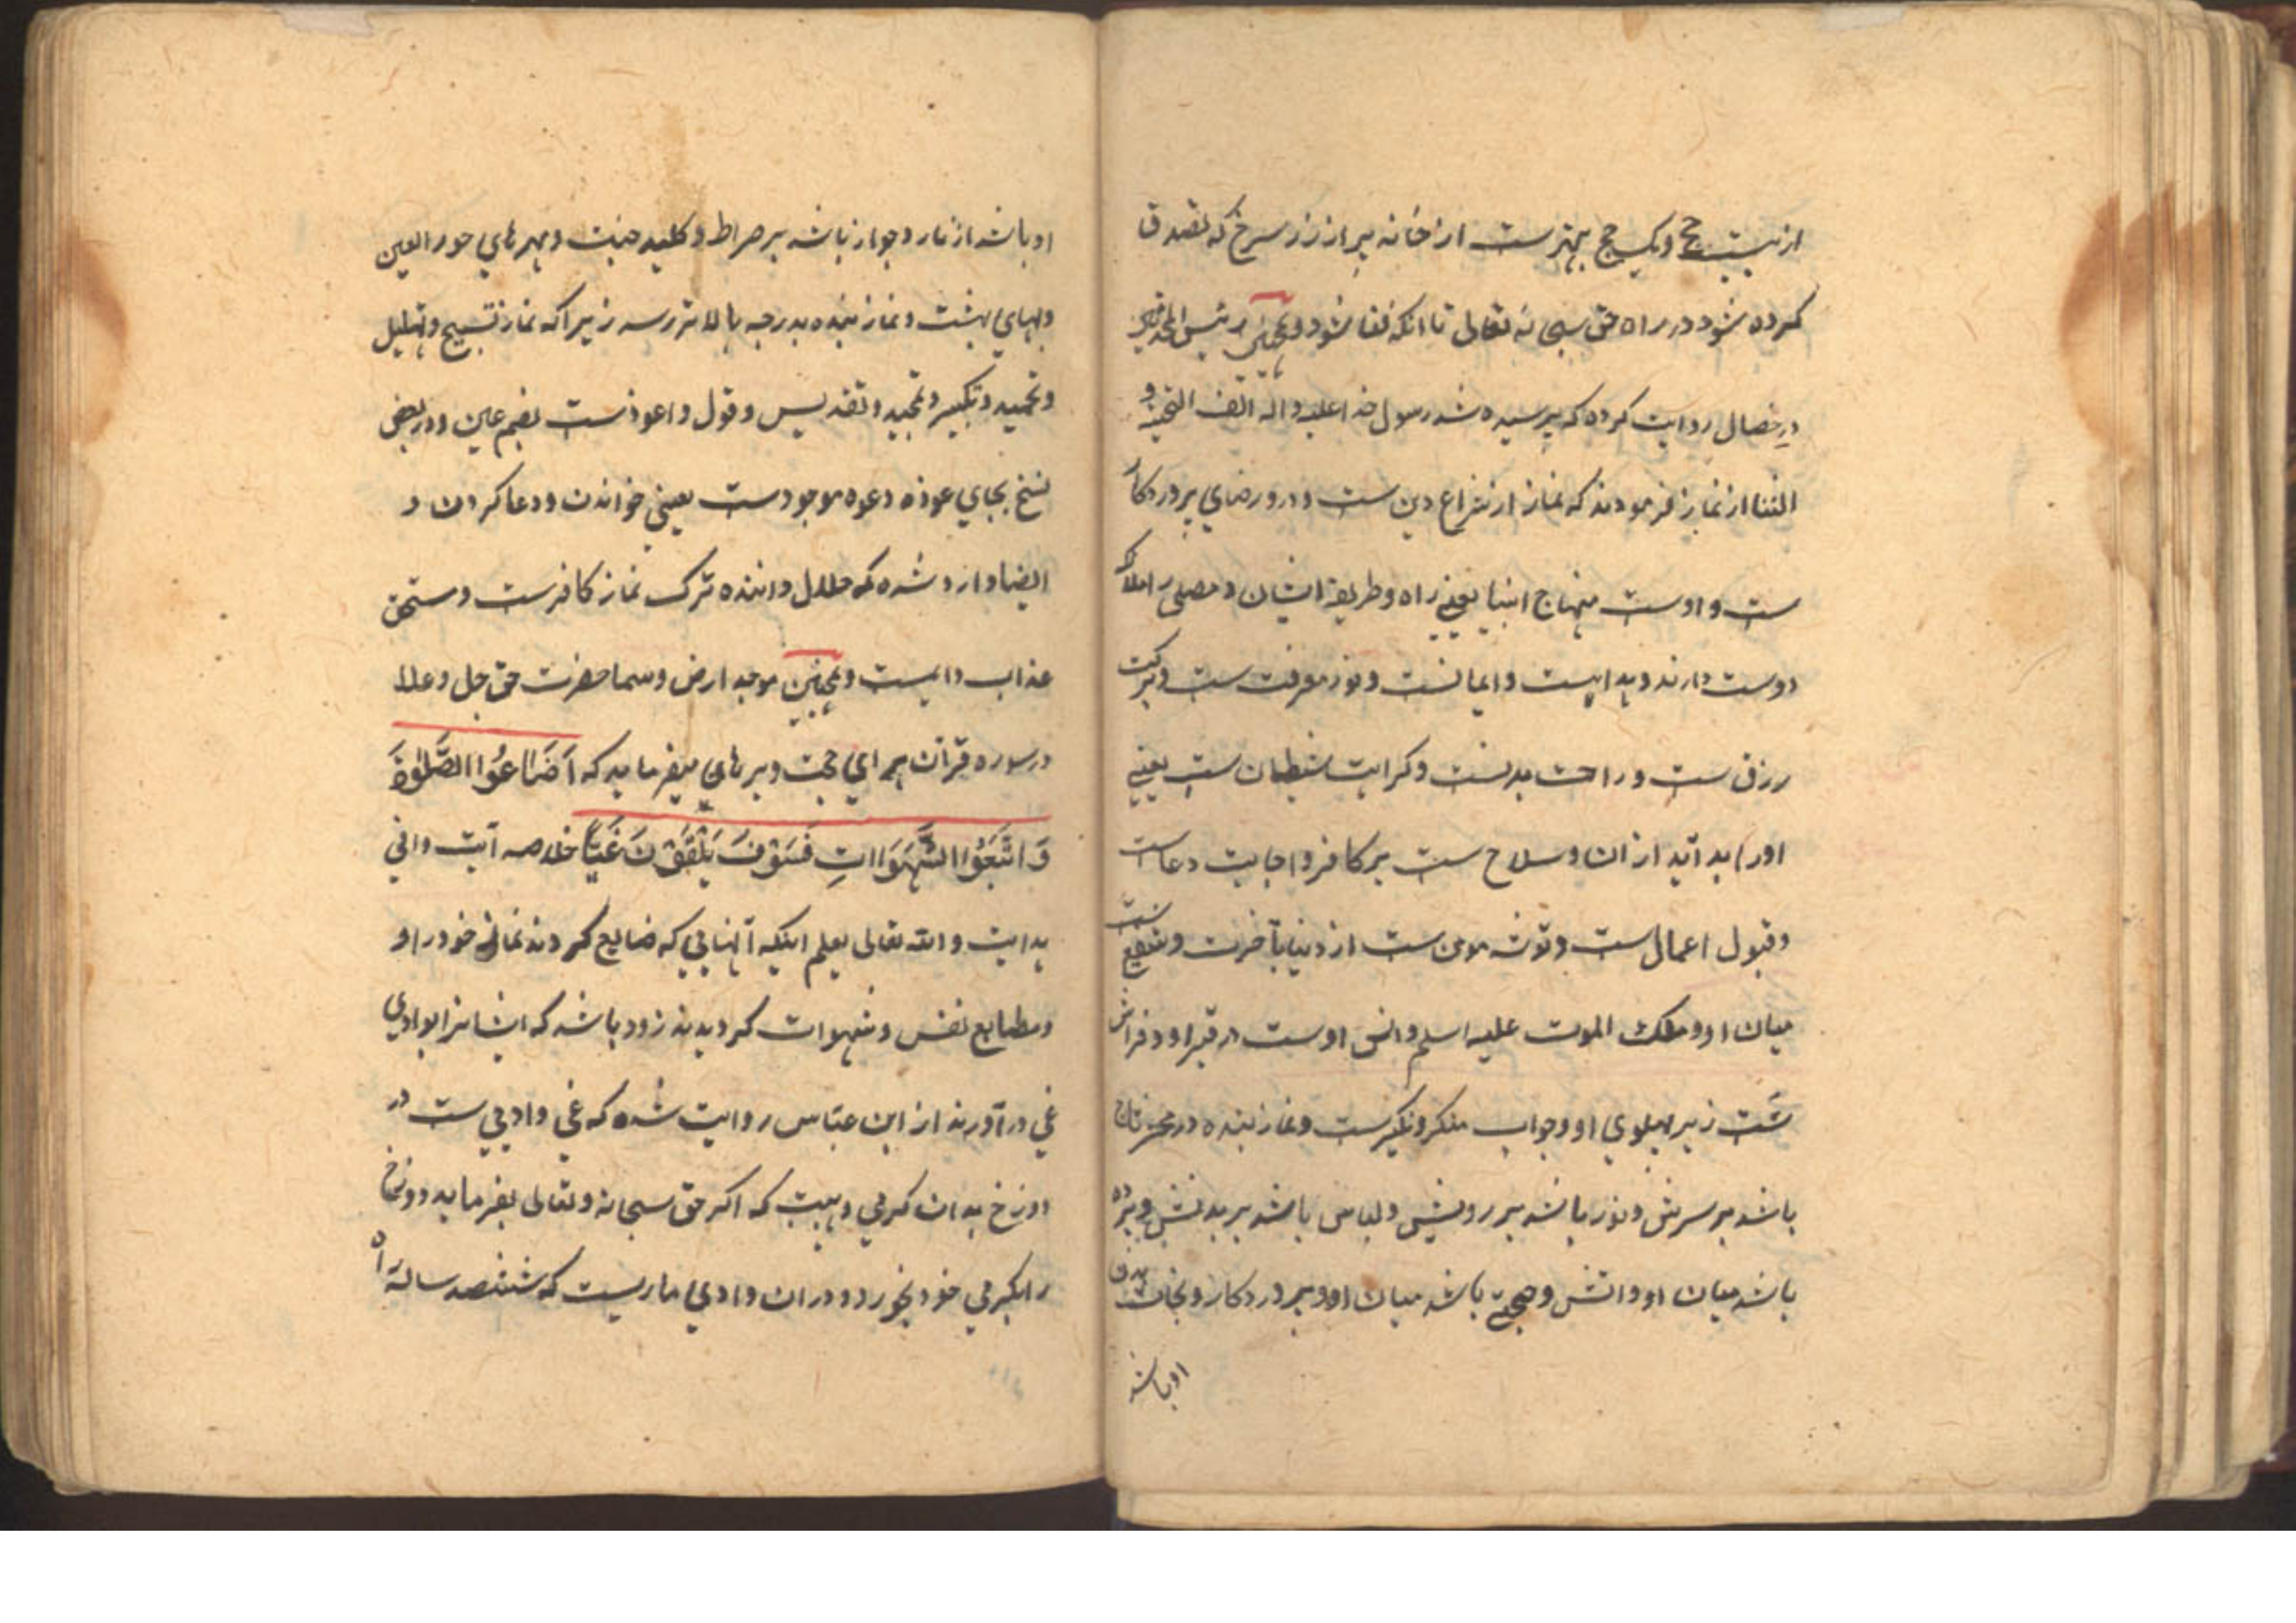 از بیست حج و یک حج بهترست از خانه پر از زر سرخ که تصدق
کرده شود در راه حق سبحانه تعالی تا آنکه فنا شود و همچنین رئیس المحدثین
در خصال روایت کرده که پرسیده شد رسول خدا علیه و آله الف التحیة و
الثنا از نماز فرمودند که نماز از شرایع دین ست و درو رضای پروردکار
ست و اوست منهاج انبیا یعنی راه و طریقه ایشان و مصلی را ملائکه
دوست دارند و هدایست و ایمانست و نور معرفت ست و برکت
رزق ست و راحت بدنست و کراهت شیطان ست یعنی
اورا بد آید ازان و سلاح ست بر کافر و اجابت دعاست
و قبول اعمال ست و توشه مومن ست از دنیا بآخرت و شفیع ست
میان او و ملک الموت علیه اسلم و انس اوست در قبر او و فراش
ست زیر پهلوی او و جواب منکر و نکیرست و نماز بنده در محشر تاج
باشد بر سرش و نور باشد بر رویش و لباس باشد بر بدنش و پرده
باشد میان او و اتش و حجتی باشد میان او و پروردکار و نجات بدن
او باشد
او باشد از نار و جواز باشد بر صراط و کلید جنت و مهرهای حور العین
و بهای بهشت و نماز بنده بدرجه بالاتر رسد زیرا که نماز تسبیح و تهلیل
و تحمید و تکبیر و تمجید و تقدیس و قول و اعوذست بضم عین و در بعض
نسخ بجای عوذه دعوه موجودست یعنی خواندن و دعا کردن و
ایضا وارد شده که حلال داننده ترک نماز کافرست و مستحق
عذاب دایمست و همچنین موجد ارض و سما حضرت حق جل و علا
در سوره قرآن برای حجت و برهان میفرماید که اَضَاعُوا الصَّلٰوةَ
وَ اتَّبَعُوا الشَّهَوَاتِ فَسَوْفَ یَلْقَوْنَ غَیًّا خلاصه آیت وافی
هدایت و الله تعالی یعلم اینکه آنهایی که ضایع کردند نماز خود را و
و مطایع نفس و شهوات کردیدند زود باشد که ایشانرا بوادی
غی در آورند از ابن عباس روایت شده که غی وادیی ست در
دوزخ بدان کرمی و هیبت که اکر حق سبحانه و تعالی بفرماید دوزخ
را بکرمی خود بخورد و دران وادی ماریست که ششصد ساله راه